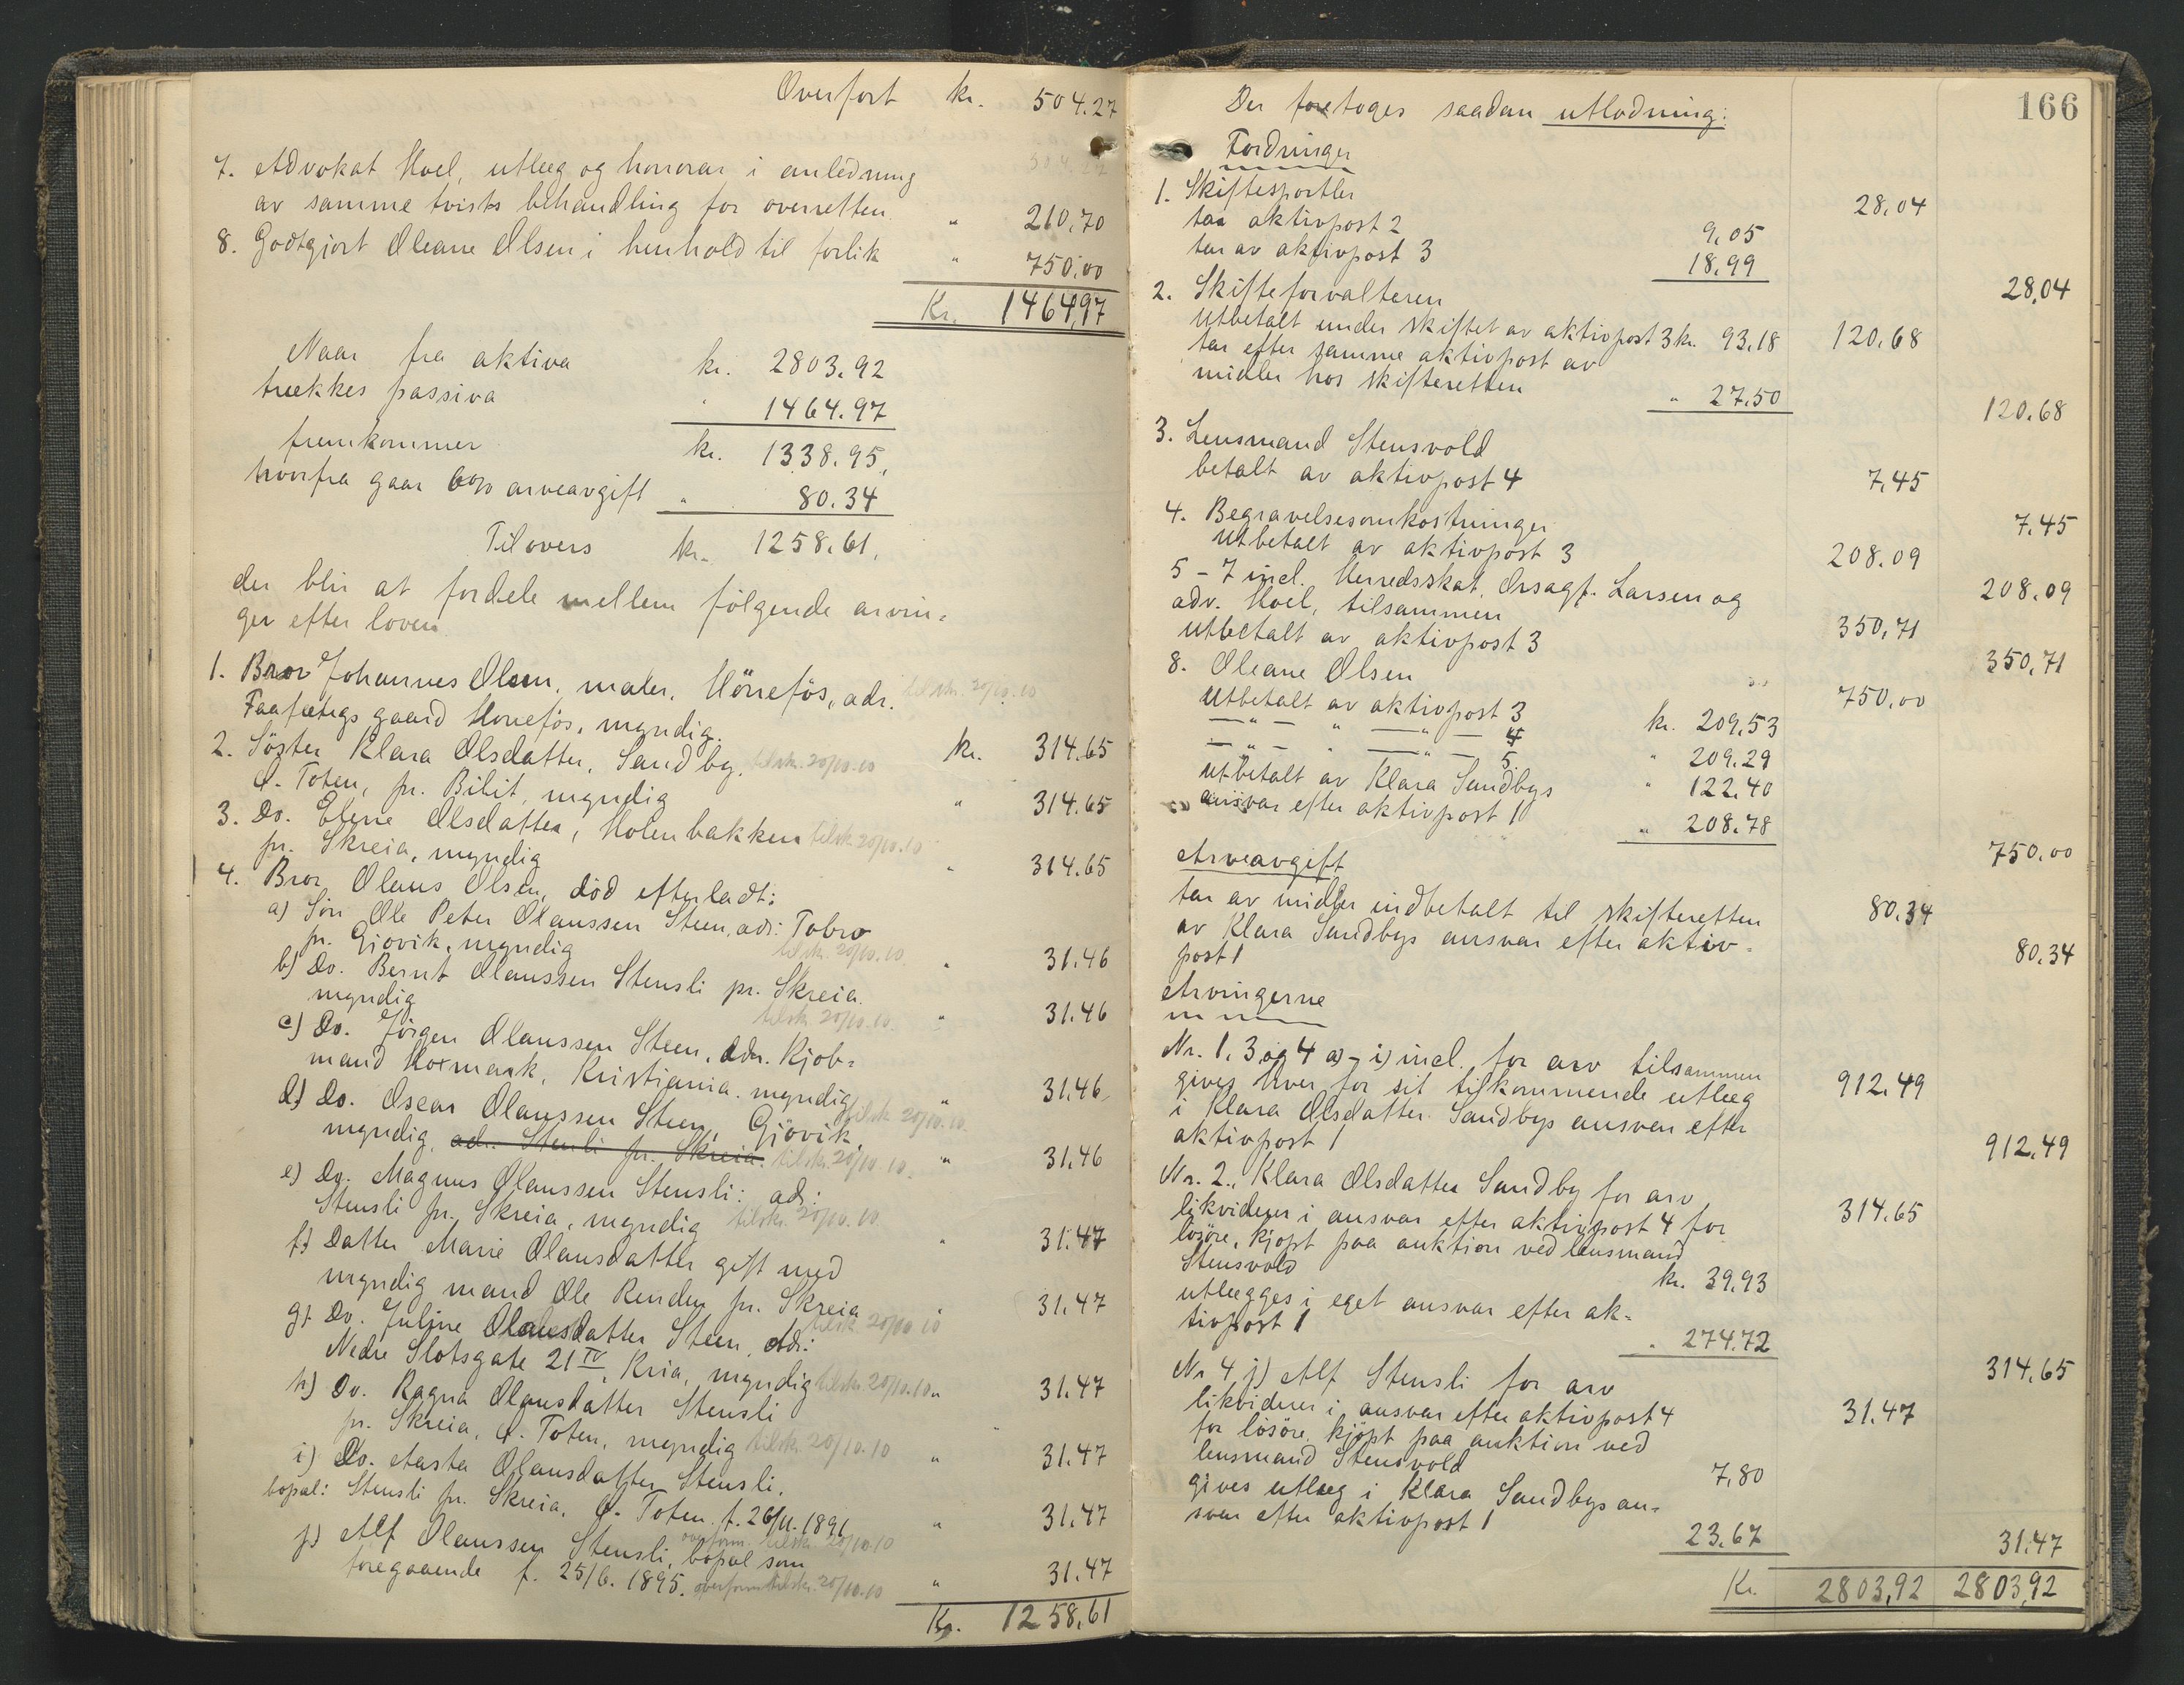 Overført kr. 504.27
7. Advokat Hoel, utlæg og honorar i anledning
av samme tvists behandling for overretten " 210,70
8. Godtgjort Oleane Olsen i henhold til forlik " 750,00
Kr. 1464,97
Naar fra aktiva kr. 2803.92
trækkes passiva " 1464.97
fremkommer kr. 1338.95,
hvorfra gaar 6% arveavgift " 80.34
Tilovers kr. 1258.61,
der blir at fordele mellem følgende arvin-
ger efter loven.
1. Bror Johannes Olsen, maler, Hönefös, adr. tilskr. 20/10.10
gaard Honefös, myndig. kr. 314.65
2. Söster Klara Olsdatter, Sandby, tilskr. 20/10.10
Ö. Toten, pr. Bilit, myndig " 314.65
3. Do. Eline Olsdatter, Holenbakken tilskr. 20/10.10
pr. Skreia, myndig " 314.65
4. Bror Olaus Olsen, död efterladt:
a) Sön Ole Peter Olaussen Steen, adr: Tobro
pr. Gjøvik, myndig tilskr. 20/10.10 " 31.46
b) Do. Bernt Olaussen Stensli pr. Skreia.
myndig tilskr. 20/10.10 " 31.46
c) Do. Jörgen Olaussen Steen, adr. Kjøb-
mand Hormark, Kristiania. myndig " 31.46
d) Do. Oscar Olaussen Steen, Gjövik, tilskr. 20/10.10.
myndig, adr. Stensli pr. Skreia. tilskr. 20/10.10. " 31.46
e) Do. Magnus Olaussen Stensli: adr:
Stensli pr. Skreia, myndig tilskr. 20/10.10. " 31.47
f) Datter Marie Olausdatter gift med
myndig mand Ole Renden pr. Skreia " 31.47
g) Do. Juline Olausdatter Steen, adr: tilskr. 20/10 10
Nedre Slotsgate 21 IV, Kria, myndig tilskr. 20/10.10 " 31.47
h) Do. Ragna Olausdatter Stensli
pr. Skreia, Ö. Toten, myndig tilskr. 20/10.10 " 31.47
i) Do. Aasta Olausdatter Stensli,
bopæl: Stensli pr. Skreia, Ö. Toten f. 26/11.1891 " 31.47
overform. tilskr. 20/10.10
j) Alf Olaussen Stensli, bopæl som
foregaaende f. 25/6. 1895. overform tilskr. 20/10.10 " 31.47
Kr. 1258,61
166
Der foretoges saadan utlodning:
Fordringer
1. Skiftesportler 28.04
tas aktivpost 2 9,05
tas av aktivpost 3 18,99
28,04
2. Skifteforvalteren 120.68
utbetalt under skiftet av aktivpost 3 kr. 93,18
tar efter samme aktivpost av
midler hos skifteretten " 27.50
120.68
3. Lensmand Stensvold 7,45
betalt av aktivpost 4
7,45
4. Begravelsesomkostninger 208.09
utbetalt av aktivpost 3
208.09
5 – 7 incl. Herredsskat, Orsagf. Larsen og
adv. Hoel, tilsammen 350,71
utbetalt av aktivpost 3
350,71
8. Oleane Olsen 750,00
utbetalt av aktivpost 3 kr. 209,53
— " — " — " — 4 " 209.29
— " — " — " — 5. " 122.40
utbetalt av Klara Sandbys
ansvar efter aktivpost 1 " 208.78
750.00
Arveavgift 80.34
tar av midler indbetalt til skifteretten
av Klara Sandbys ansvar efter aktiv-
post 1
80.34
Arvingerne
Nr. 1, 3 og 4 a) – i) incl. for arv tilsammen 912.49
gives hver for sit tilkommende utlæg
i Klara Olsdatter Sandbys ansvar efter
aktivpost 1
912.49
Nr. 2., Klara Olsdatter Sandby for arv 314.65
likviderer i ansvar efter aktivpost 4 for
lösöre, kjøpt paa auktion ved lensmand
Stensvold kr. 39,93
utlægges i eget ansvar efter ak-
tivpost 1 " 274.72
314.65
Nr 4 j) Alf Stensli for arv 31.47
likviderer i ansvar efter aktivpost 4
for lösöre, kjöpt paa auktion ved
lensmand Stensvold 7,80
gives utlæg i Klara Sandbys an-
svar efter aktivpost 1 23.67
31.47
Kr. 2803,92 2803,92